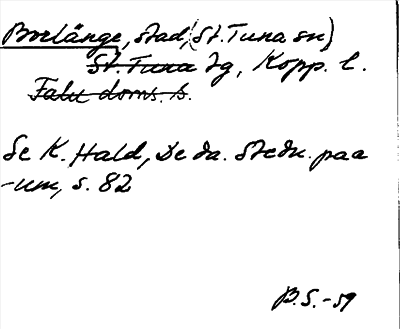 Borlänge, stad, (St. Tuna sn)
St. Tuna tg, Kopp. l.
Falu doms. s.
Se K. Hald, De da. Stedn. paa
-um, s. 82
B.S.-59